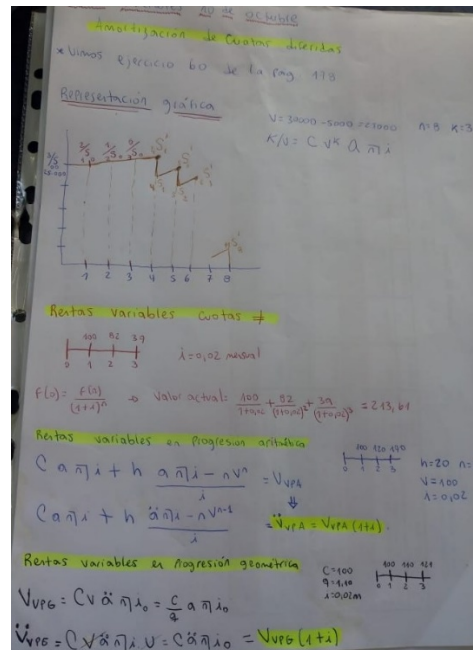 30 de octubre
Amortización de cuotas diferidas
* Vimos ejercicio 60 de la pag 118
Representación gráfica
n=8 k=3
K/V = C V^K a n̅ i
1 2 3 4 5 6 7 8
Rentas variables cuotas ≠
100 92 39
0 1 2 3
i=0,02 mensual
F(0) = F(n)/(1+i)^n → Valor actual: 100/(1+0,02) + 92/(1+0,02)^2 + 39/(1+0,02)^3 = 213,61
Rentas variables en progresion aritmética
C a n̅ i + h (a n̅ i - n V^n)/i = V_VPA
100 120 140
0 1 2 3
h=20 n=
V=100
i=0,02
C a n̅ i + h (ä n̅ i - n V^n-1)/i
= V̈_VPA = V_VPA (1+i).
Rentas variables en Progresión geométrica
C=100
q=1,10
i=0,02m
100 110 121
0 1 2 3
V_VPG = C V ä n̅ i₀ = C/q a n̅ i₀
V̈_VPG = C V ä n̅ i U = C ä n̅ i₀ = V_VPG (1+i)